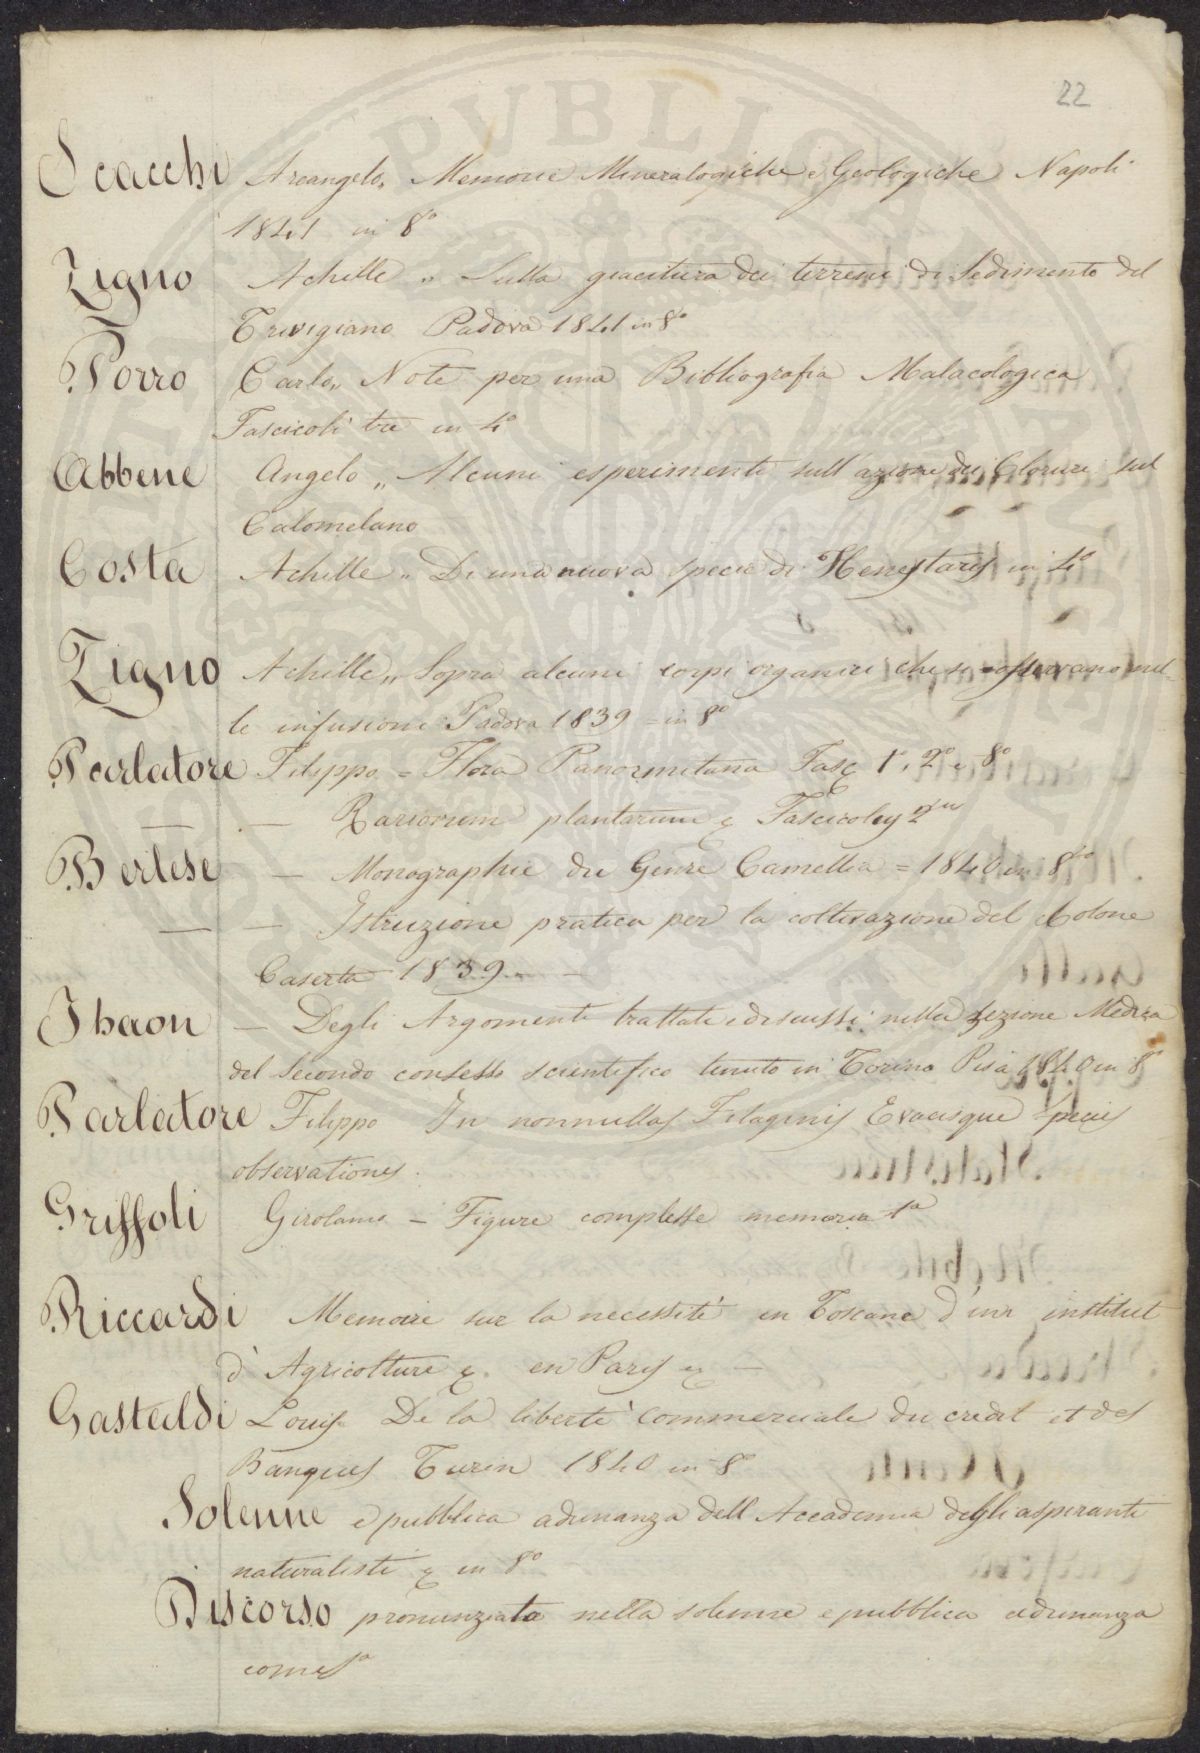 22
Scacchi Arcangelo „ Memorie Mineralogiche e Geologiche Napoli
1841 in 8°
Zigno Achille „ Sulla giacitura dei terreni di Sedimento del
Trivigiano Padova 1841 in 8°
Porro Carlo „ Note per una Bibliografia Malacologica
Fascicoli tre in 4°
Abbene Angelo „ Alcuni esperimenti sull'azione dei Cloruri sul
Calomelano
Costa Achille „ Di una nuova specie di Henestaris in 4°
Zigno Achille „ Sopra alcuni corpi organici che si osservano nel-
le infusioni Padova 1839 = in 8°
Parlatore Filippo = Flora Panormitana Fasc 1°, 2° e 8°
— — Rariorum plantarum & Fascicoley 2us
Bertese — Monographie du Genre Camellia = 1840 in 8vo
— — Istruzione pratica per la coltivazione del Cotone
Caserta 1839 —
Thaon — Degli Argomenti trattati e discussi nella Sezione Medica
del Secondo consesso scientifico tenuto in Torino Pisa 1840 in 8°
Parlatore Filippo In nonnullas Filaginis Evacisque species
observationes.
Griffoli Girolamo — Figure complesse memoria 1a
Riccardi Memoire sur la necessité en Toscane d'un institut
d'Agricolture & en Paris &c —
Gastaldi Louis De la liberté commerciale du credit et des
Banques Turin 1840 in 8°
Solenne e pubblica adunanza dell'Accademia degli aspiranti
naturalisti & in 8°
Discorso pronunziato nella solenne e pubblica adunanza
come sa
PVBLICA